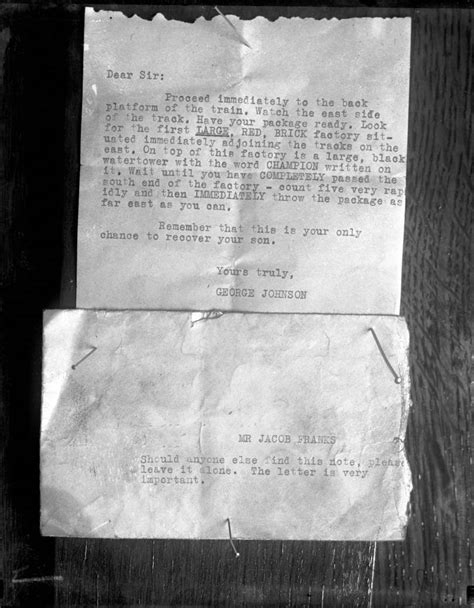 Dear Sir:
Proceed immediately to the back
platform of the train. Watch the east side
of the track. Have your package ready. Look
for the first LARGE, RED, BRICK factory sit-
uated immediately adjoining the tracks on the
east. On top of this factory is a large, black
watertower with the word CHAMPION written on
it. Wait until you have COMPLETELY passed the
south end of the factory - count five very rap
idly and then IMMEDIATELY throw the package as
far east as you can.
Remember that this is your only
chance to recover your son.
Yours truly,
GEORGE JOHNSON
MR JACOB FRANKS
Should anyone else find this note, please
leave it alone. The letter is very
important.